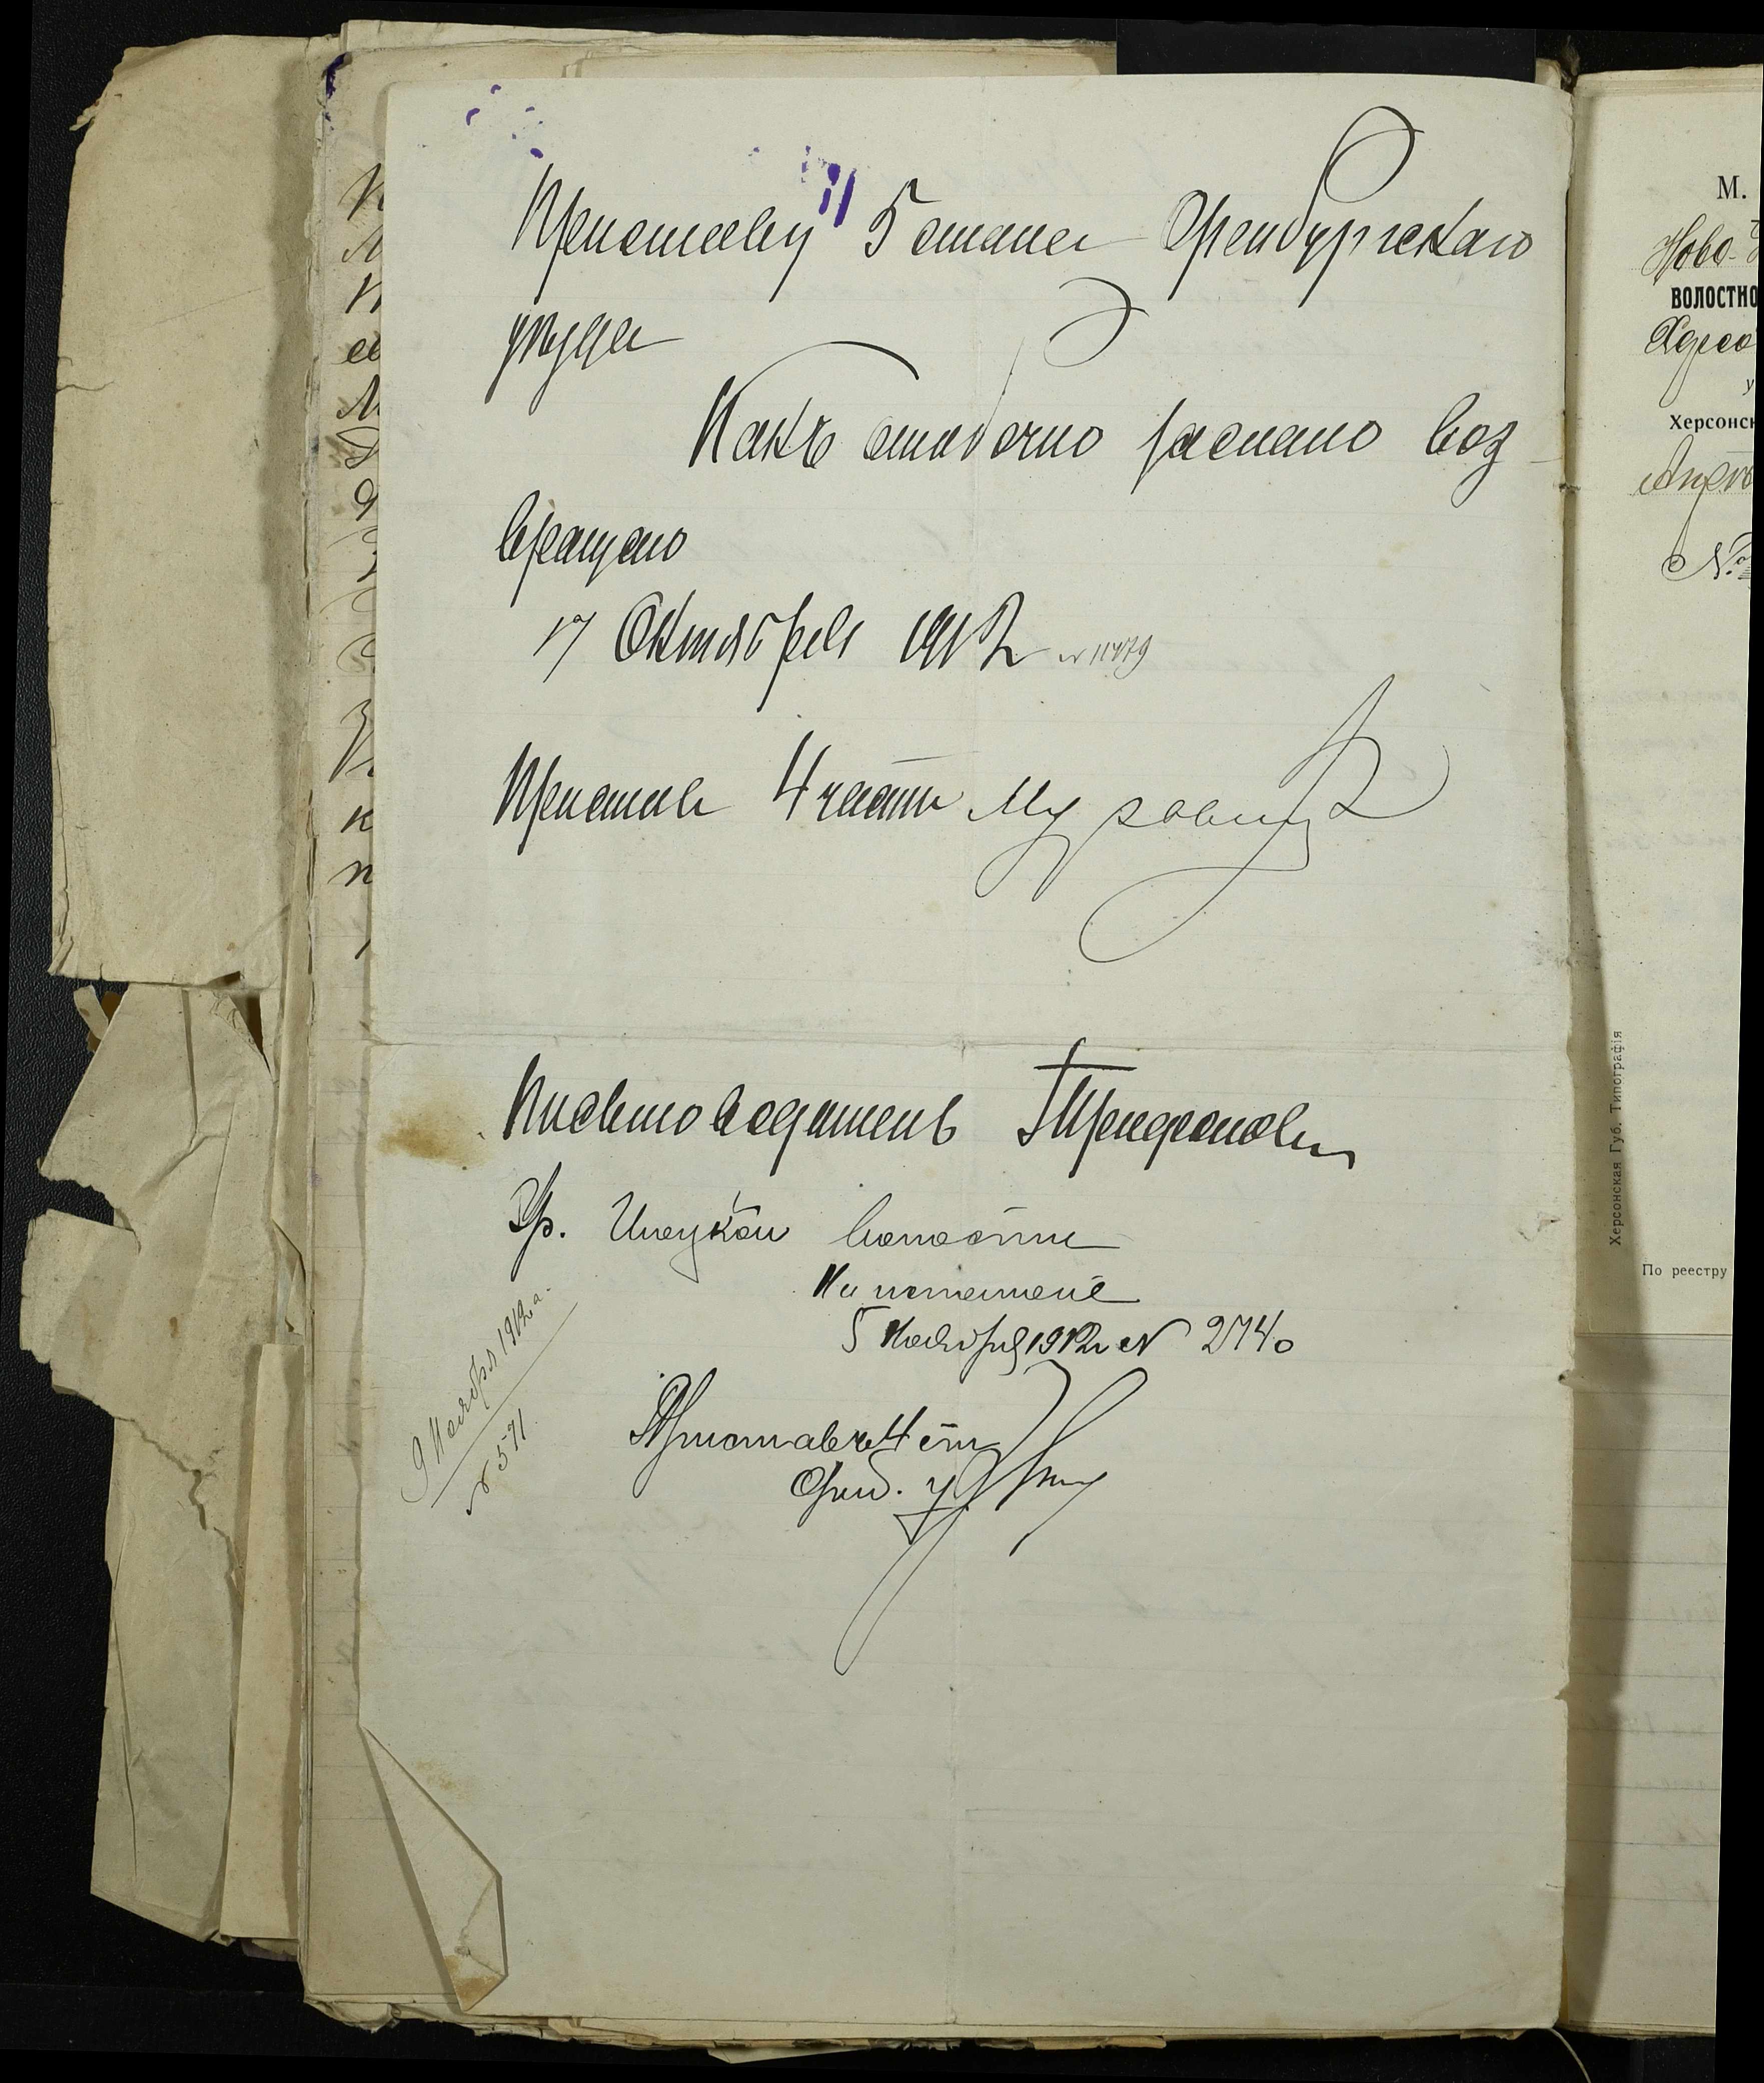 Приставу 5 стана Оренбургскаго
уѣзда
Какъ ошибочно заслано воз
вращаю
17 Октября 1912 № 11479
Приставъ 4 части
Письмоводитель
Вр. волости
На исполненіе
5 Ноября 1912 г № 2740
Приставъ 4 ст
Орен. у
9 Ноября 1912 г.
№ 571
М.
Ново-
ВОЛОСТНО
Одесс
у
Херсонск
№
Херсонская Губ. Типографія
По реестру